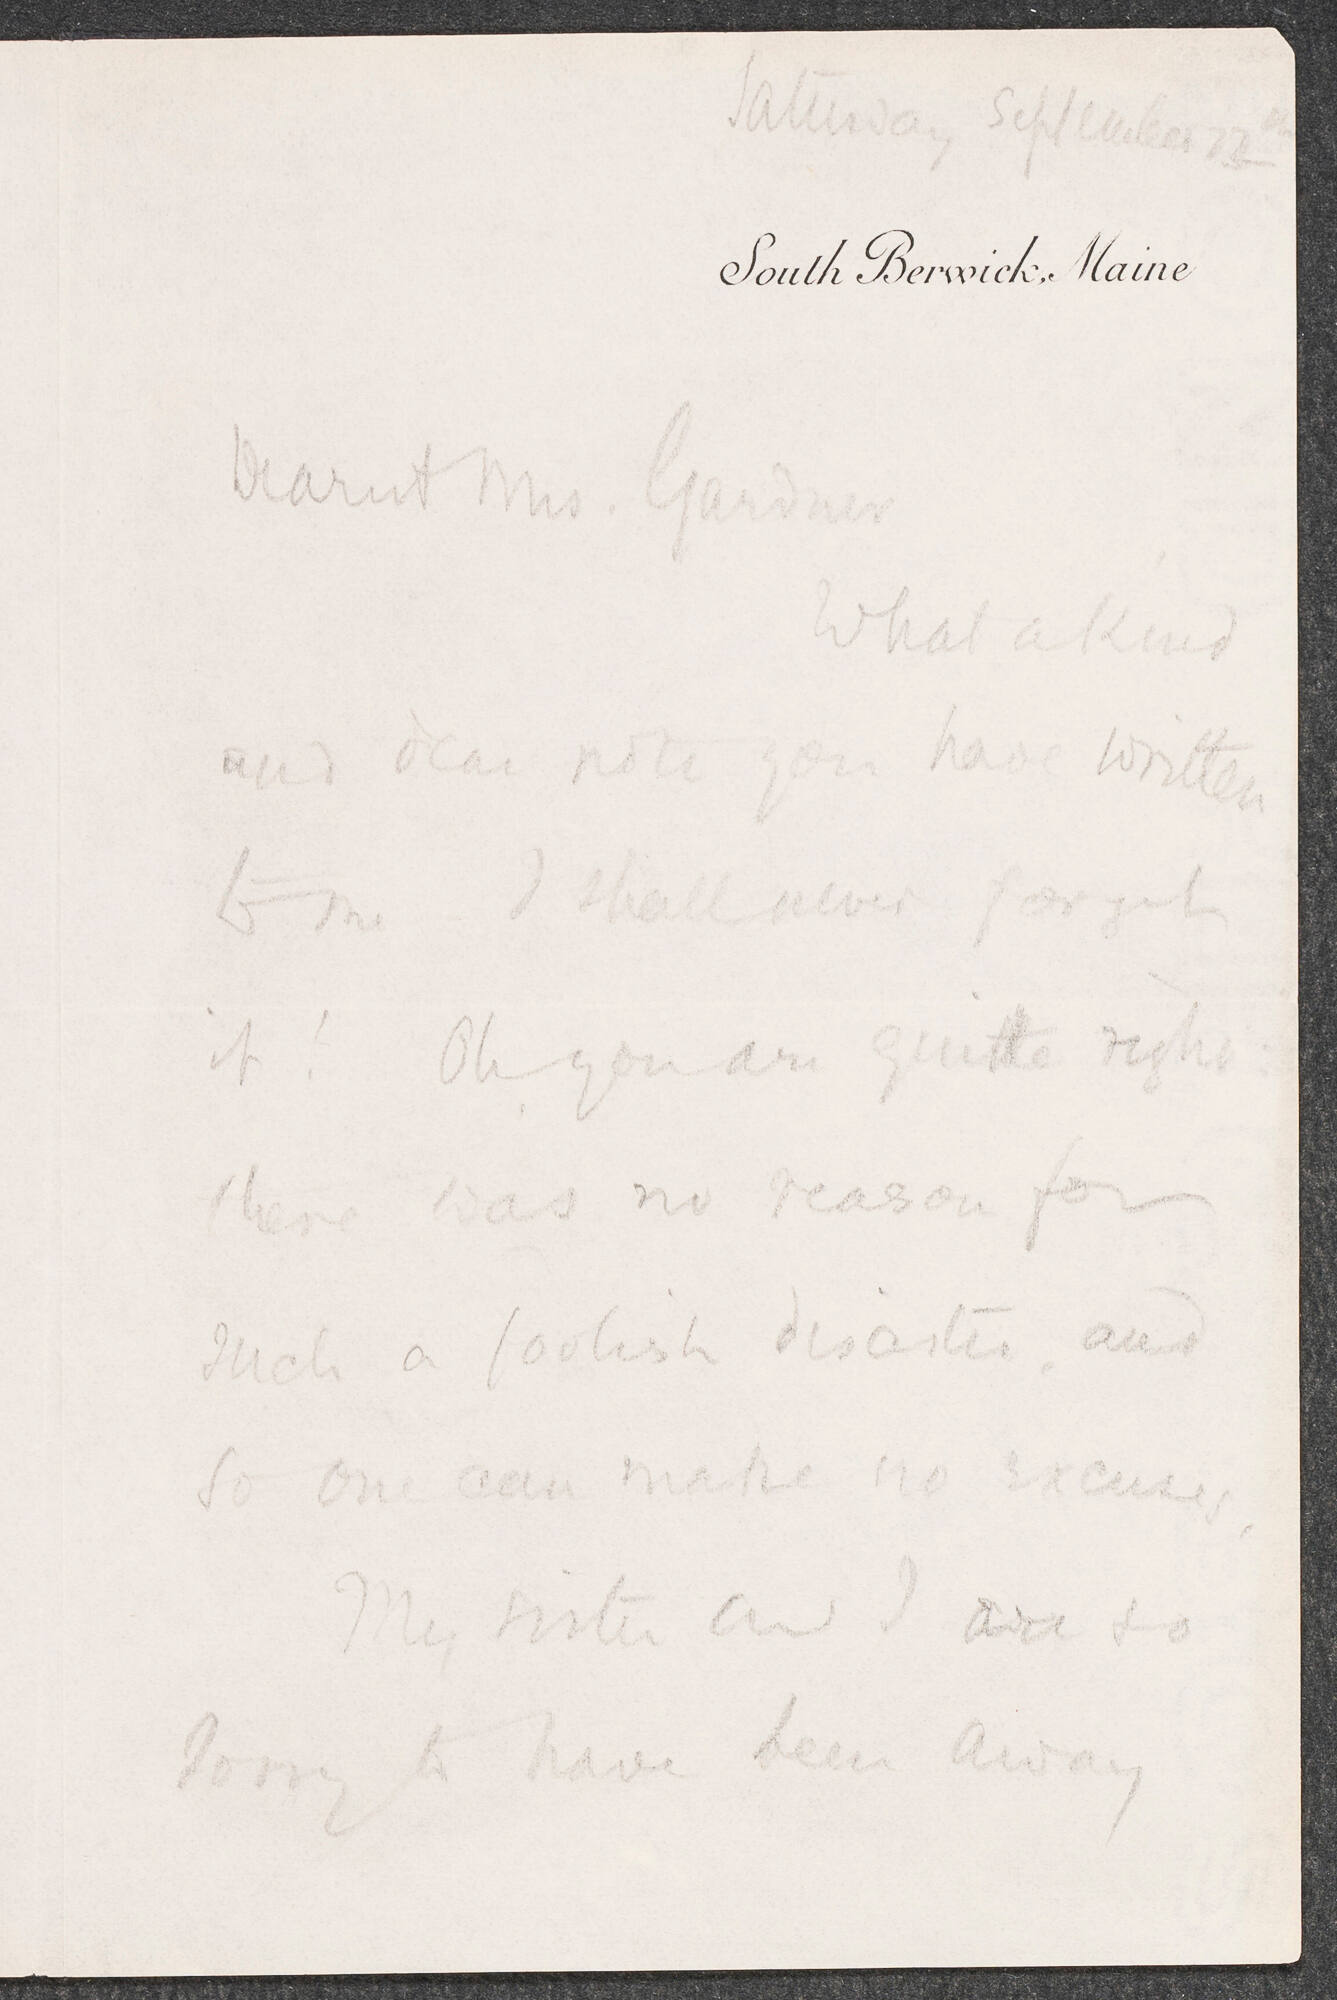 Saturday September 22nd
South Berwick, Maine
Dearest Mrs. Gardner
What a kind
and dear note you have written
to me I shall never forget
it! Oh, you are quite right:
there was no reason for
such a foolish disaster, and
so one can make no excuses,
My sister and I are so
sorry to have been away